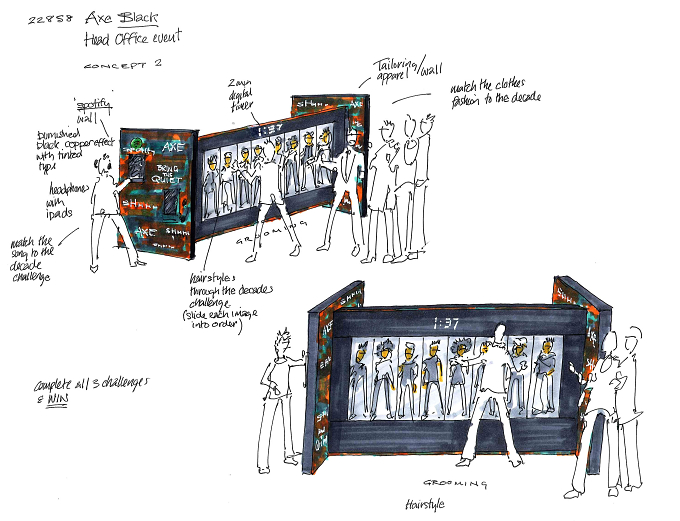 22858 Axe Black
Head Office event
CONCEPT 2
'spotify'
wall
burnished
black copper effect
with tinted
type
headphones
with
ipads
match the
song to the
decade
challenge
2 min
digital
timer
Tailoring/
apparel wall
match the clothes
fashion to the decade
SHHHH
AXE
1:37
AXE
BRING
THE
QUIET
SHHH
AXE
SHHH
GROOMING
hairstyles
through the decades
challenge
(slide each image
into order)
complete all 3 challenges
& WIN
1:37
AXE
GROOMING
Hairstyle